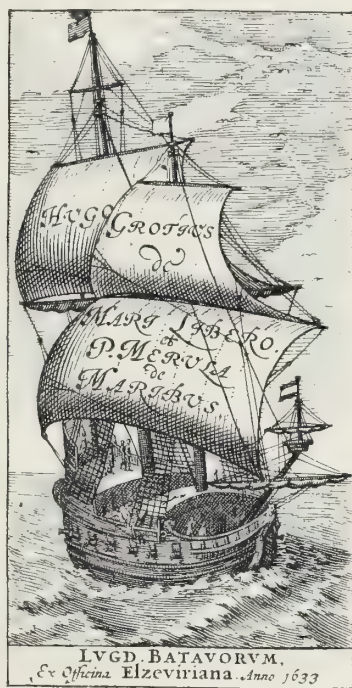 HUGO GROTIUS
de
MARI LIBERO.
et
P. MERULA
de
MARIBVS.
LVGD. BATAVORVM,
Ex Officina Elzeviriana. Anno 1633